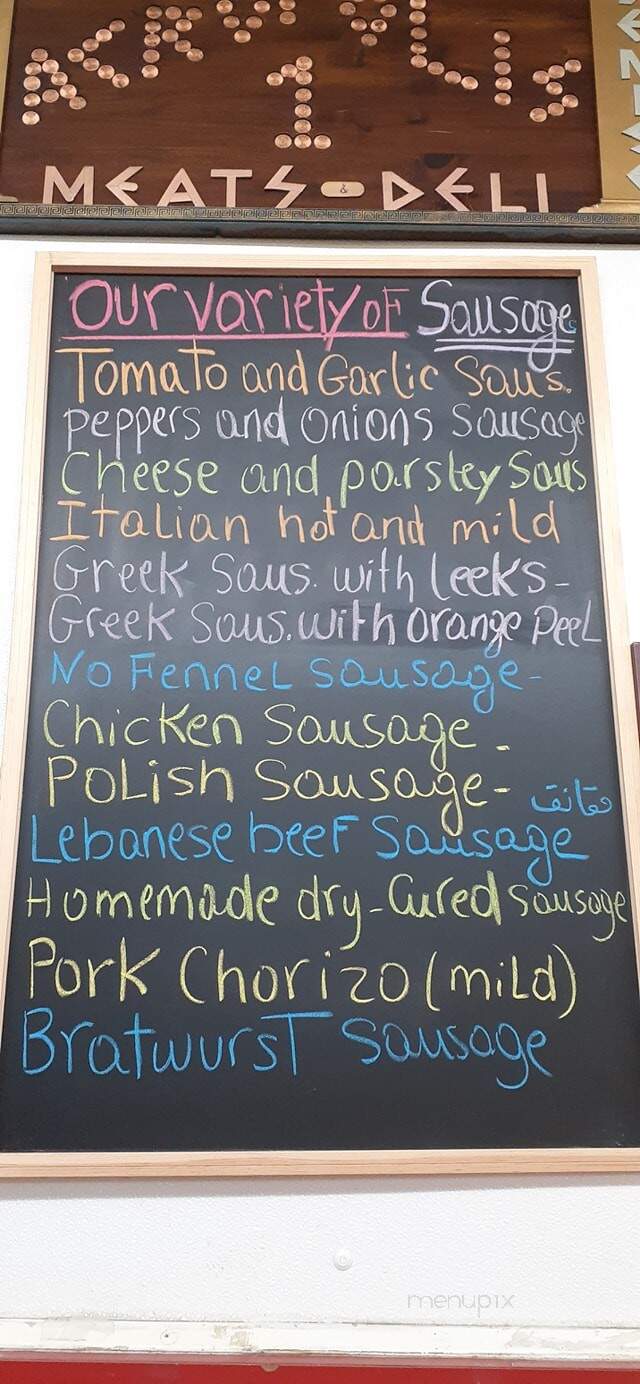 ACROPOLIS
1
MEATS & DELI
Our variety of Sausages
Tomato and Garlic Saus.
Peppers and onions Sausage
Cheese and parsley Saus
Italian hot and mild
Greek Saus. with leeks-
Greek Saus. with orange PeeL
No Fennel sausage-
Chicken Sausage.
Polish Sausage-
مقانق
Lebanese beef Sausage
Homemade dry-Cured sausage
Pork Chorizo (mild)
Bratwurst Sausage
menupix